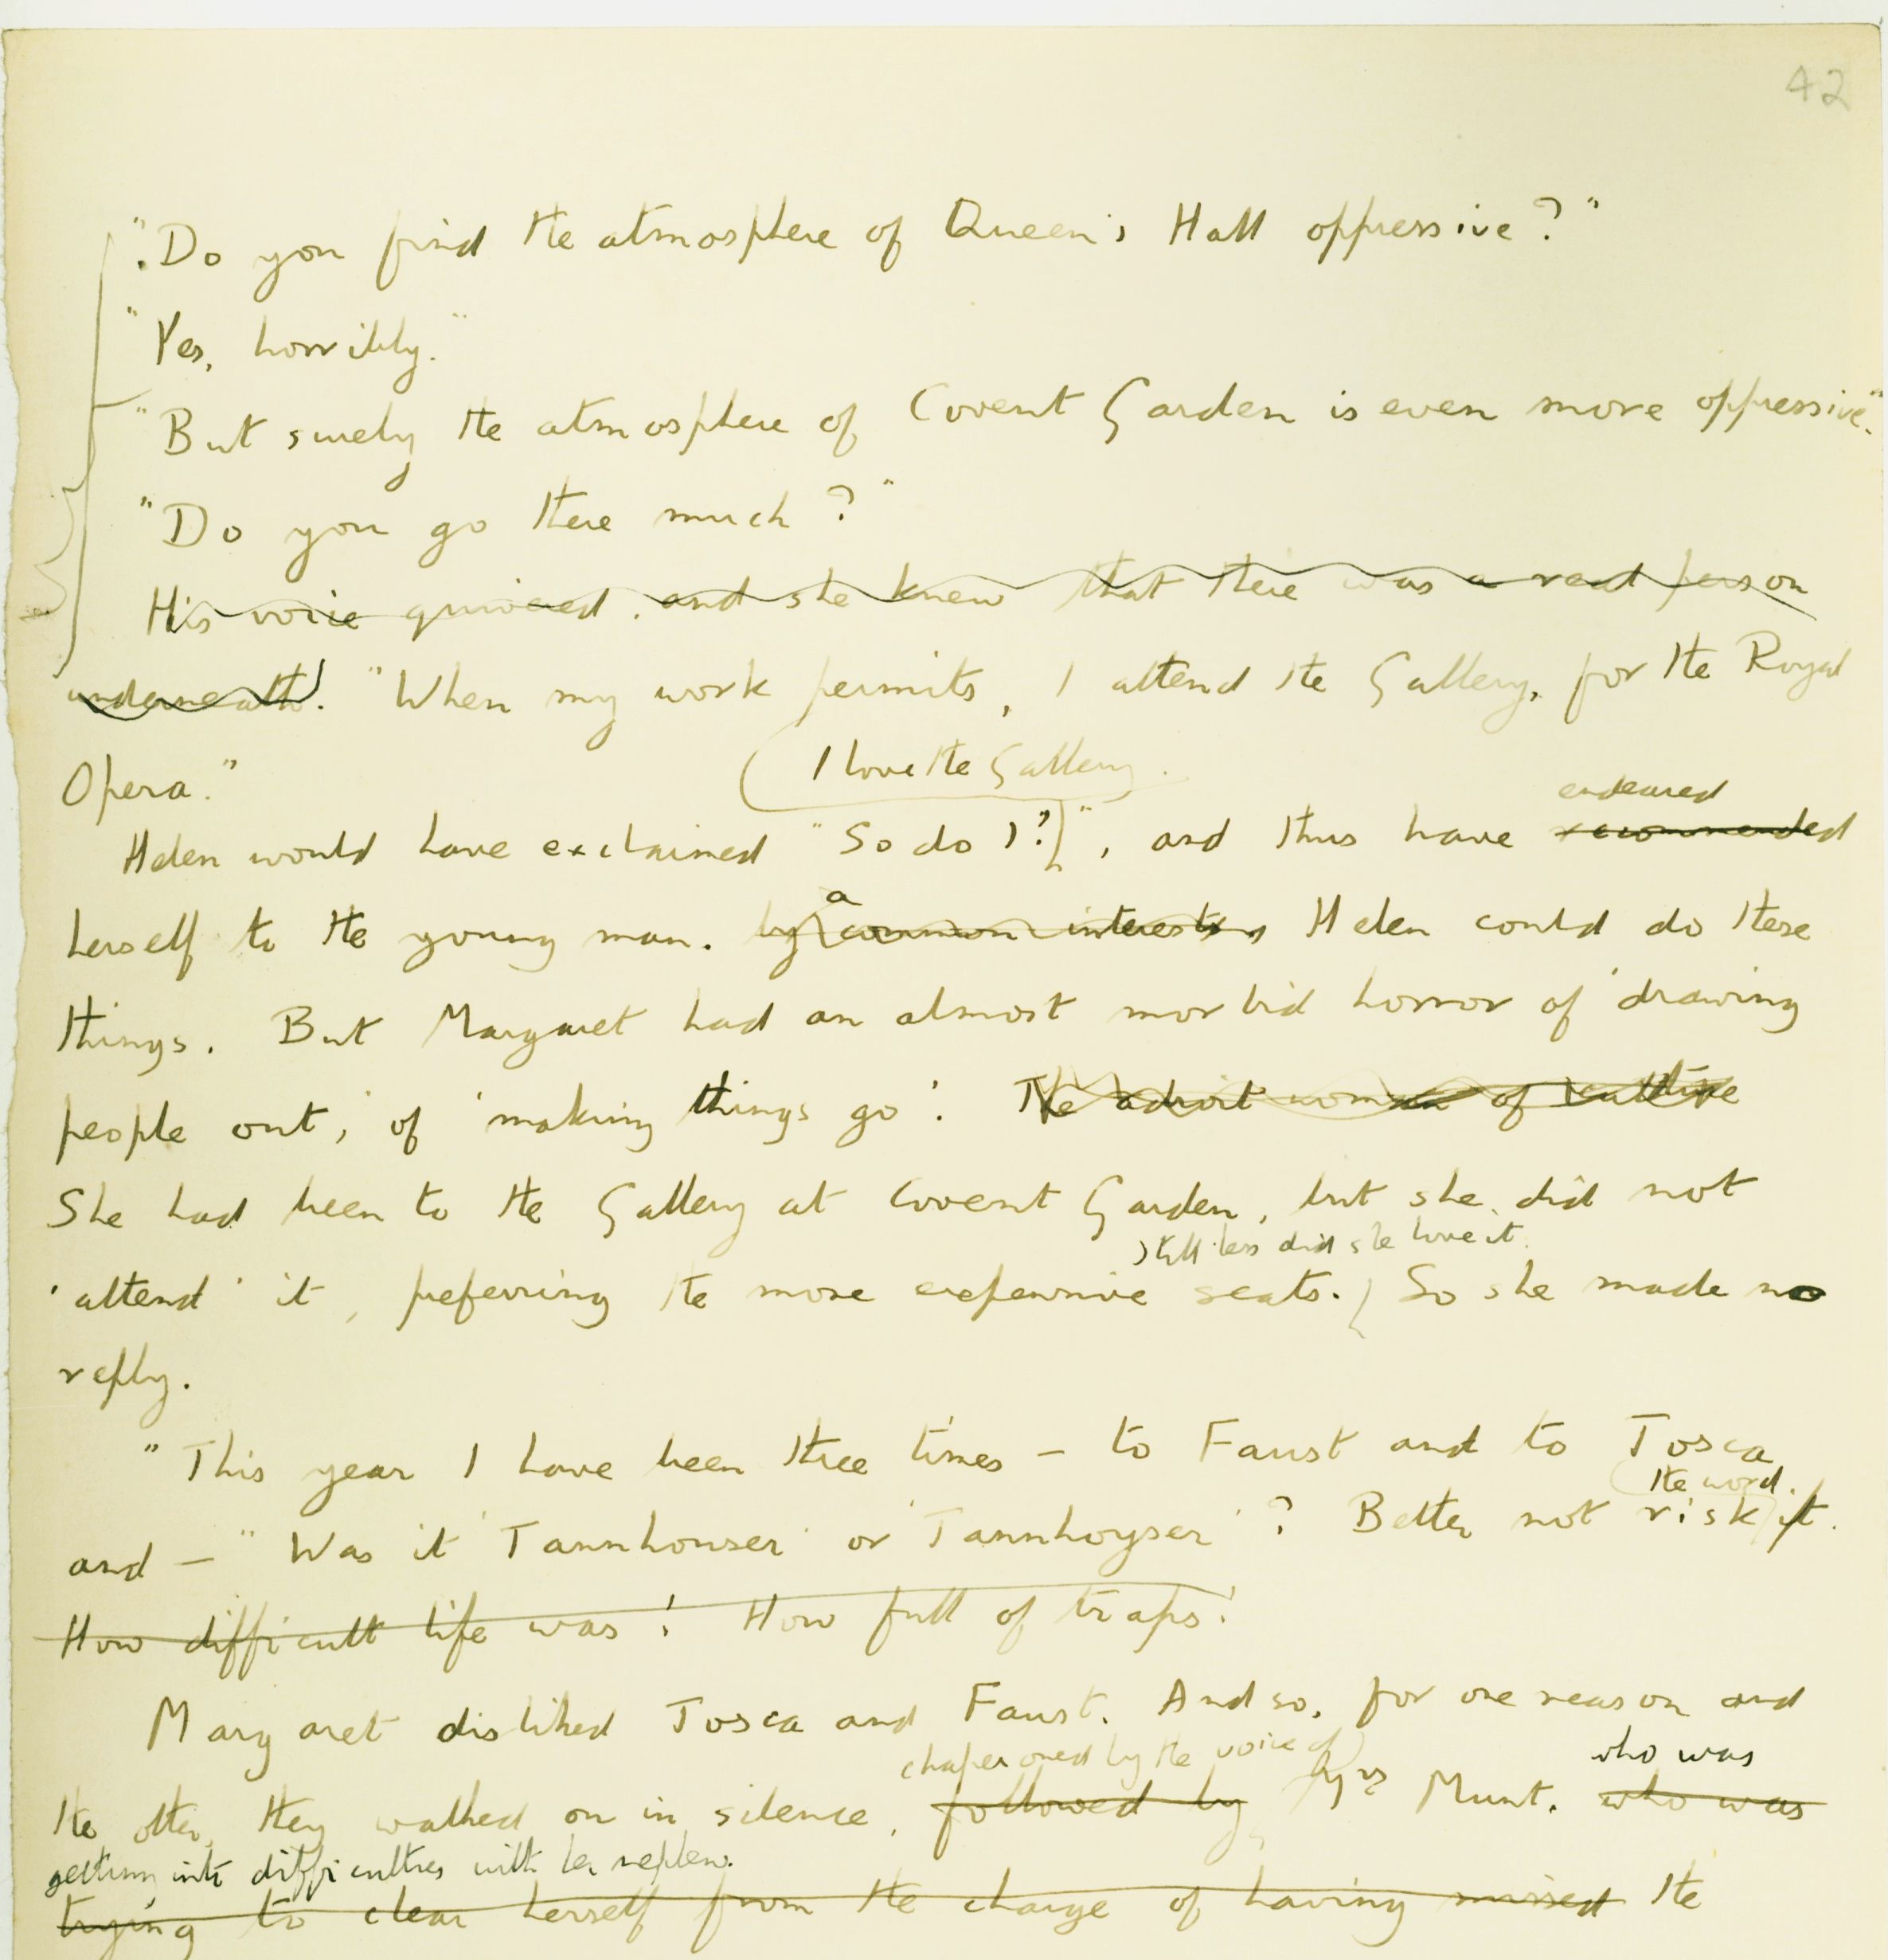 42
"Do you find the atmosphere of Queen's Hall oppressive?"
"Yes, horribly."
"But surely the atmosphere of Covent Garden is even more oppressive."
"Do you go there much?"
His voice quivered, and she knew that there was a real person
underneath. "When my work permits, I attend the Gallery, for the Royal
Opera."
I love the Gallery.
endeared
Helen would have exclaimed "So do I!", and thus have recommended
a
herself to the young man. by common interests, Helen could do these
things. But Margaret had an almost morbid horror of 'drawing
people out,' of 'making things go'. The adroit woman of culture
She had been to the Gallery at Covent Garden, but she did not
still less did she love it.
'attend' it, preferring the more expensive seats. So she made no
reply.
"This year I have been three times – to Faust and to Tosca
the word.
and –" Was it 'Tannhouser' or 'Tannhoyser'? Better not risk it.
How difficult life was! How full of traps!
Margaret disliked Tosca and Faust. And so, for one reason and
chaperoned by the voice of
who was
the other, they walked on in silence, followed by Mrs Munt. who was
getting into difficulties with her nephew.
trying to clear herself from the charge of having missed the